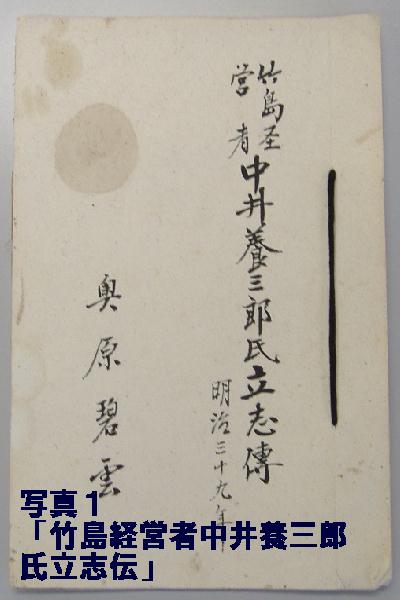 竹島圣営者
中井養三郎氏立志傳
明治三十九年
奥原碧雲
写真１
「竹島経営者中井養三郎
氏立志伝」